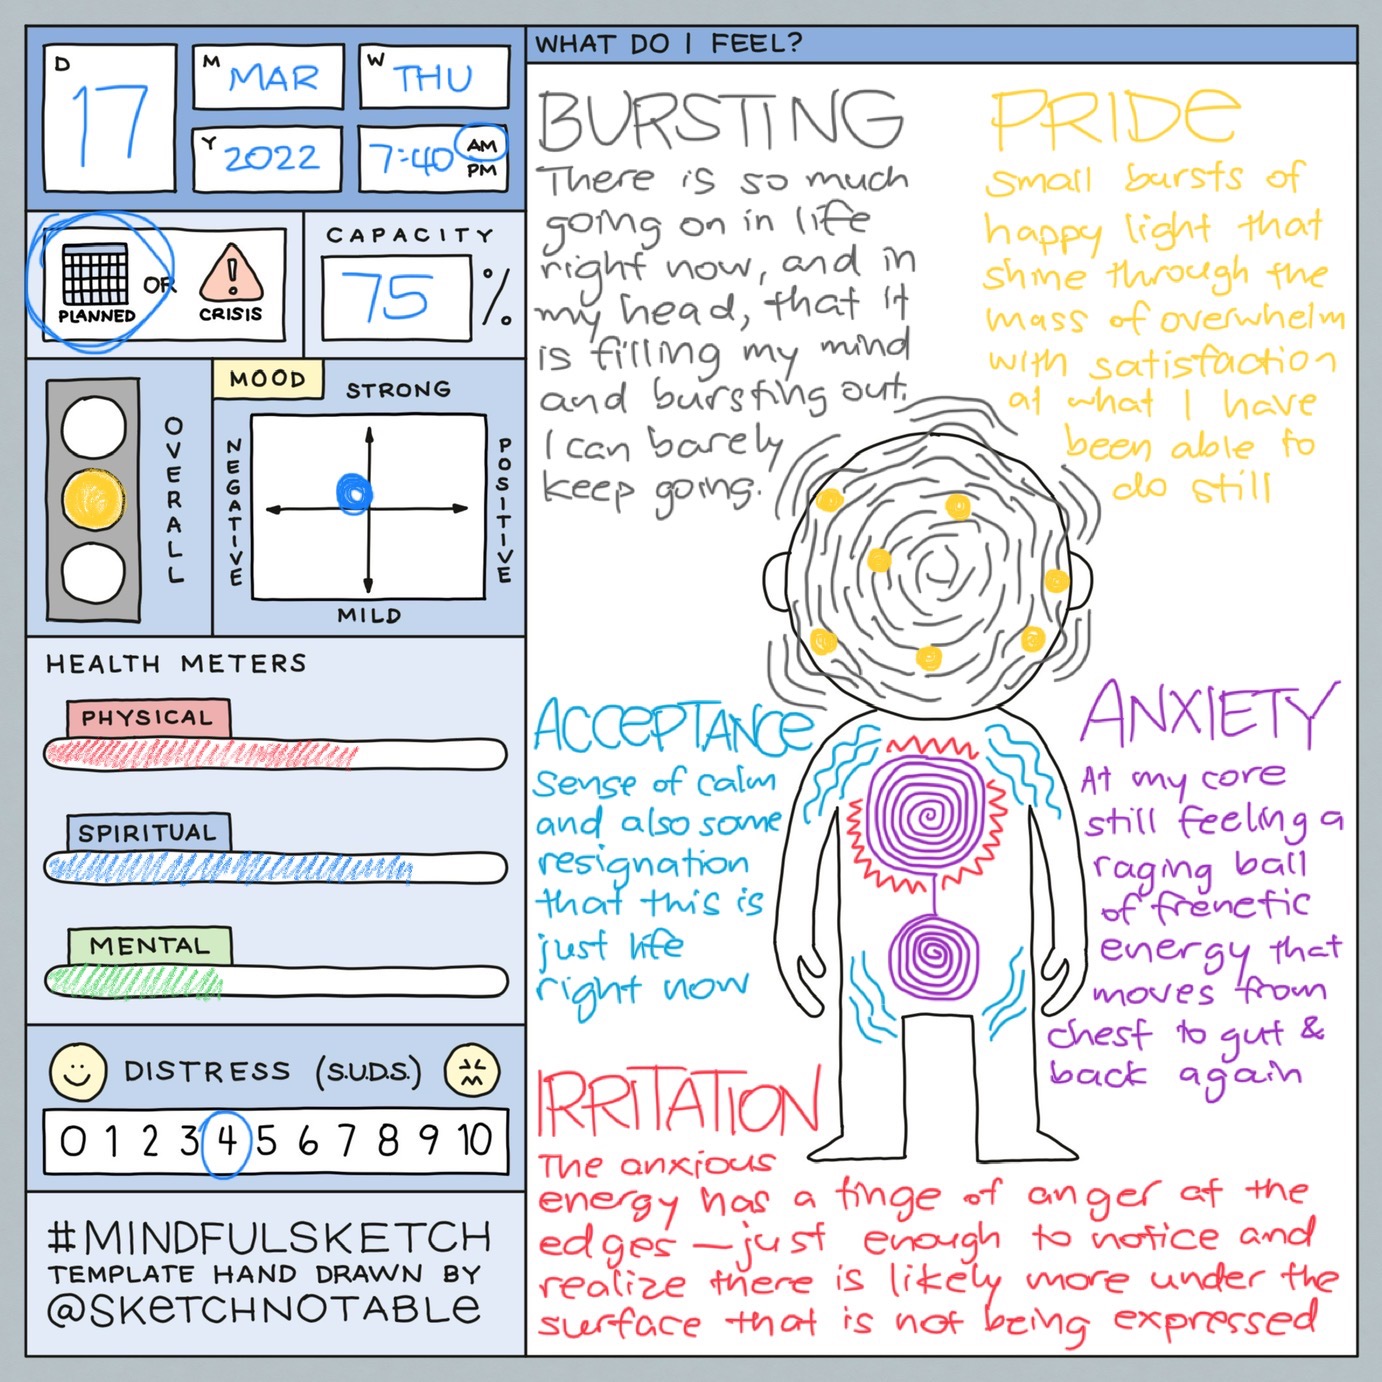 D
17
M
MAR
W
THU
Y
2022
7:40
AM
PM
PLANNED
OR
CRISIS
CAPACITY
75 %
OVERALL
MOOD
STRONG
NEGATIVE
POSITIVE
MILD
HEALTH METERS
PHYSICAL
SPIRITUAL
MENTAL
DISTRESS (S.U.D.S.)
0 1 2 3 4 5 6 7 8 9 10
#MINDFULSKETCH
TEMPLATE HAND DRAWN BY
@SKETCHNOTABLE
WHAT DO I FEEL?
BURSTING
There is so much
going on in life
right now, and in
my head, that it
is filling my mind
and bursting out.
I can barely
keep going.
PRIDE
Small bursts of
happy light that
shine through the
mass of overwhelm
with satisfaction
at what I have
been able to
do still
ACCEPTANCE
Sense of calm
and also some
resignation
that this is
just life
right now
ANXIETY
At my core
still feeling a
raging ball
of frenetic
energy that
moves from
chest to gut &
back again
IRRITATION
The anxious
energy has a tinge of anger at the
edges — just enough to notice and
realize there is likely more under the
surface that is not being expressed